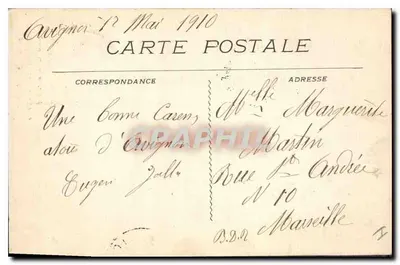 Avignon 12 Mai 1910
CARTE POSTALE
CORRESPONDANCE
Une bonne Caress
atoie d'Avignon
Eugen
ADRESSE
Melle Marguerite
Martin
Rue St Andrée
N 10
Marseille
B.D.R